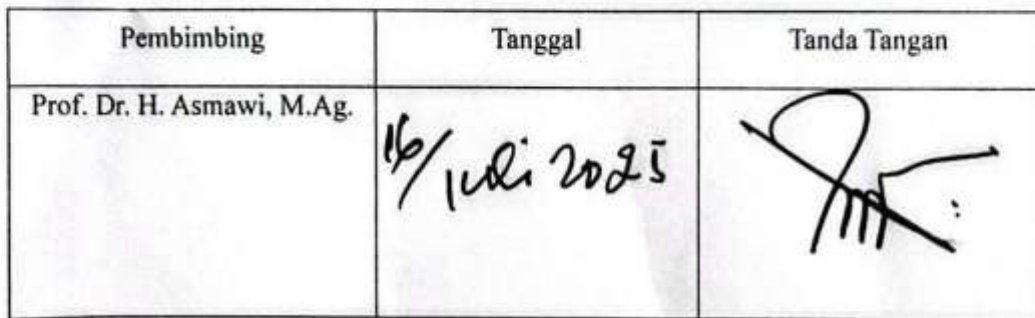 Pembimbing
Tanggal
Tanda Tangan
Prof. Dr. H. Asmawi, M.Ag.
16/Juli 2025